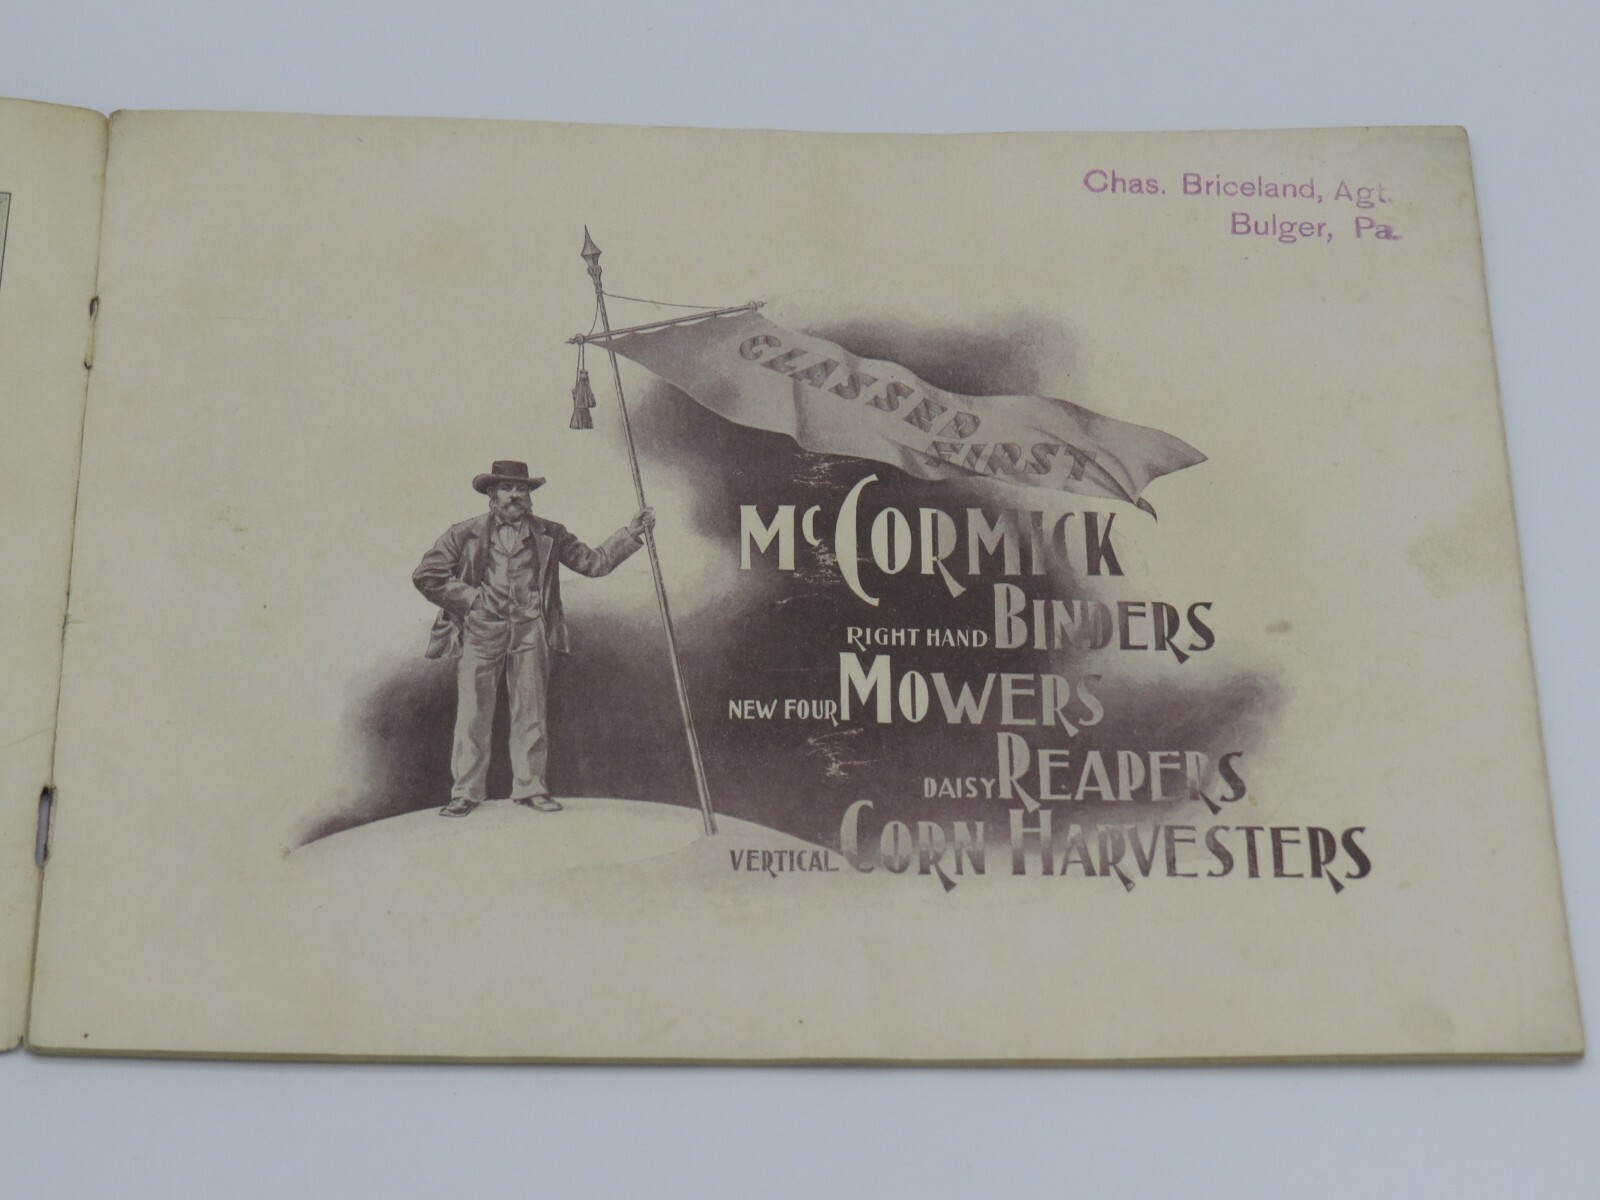 Chas. Briceland, Agt.
Bulger, Pa.
CLASSED
FIRST
McCORMICK
RIGHT HAND BINDERS
NEW FOUR MOWERS
DAISY REAPERS
VERTICAL CORN HARVESTERS